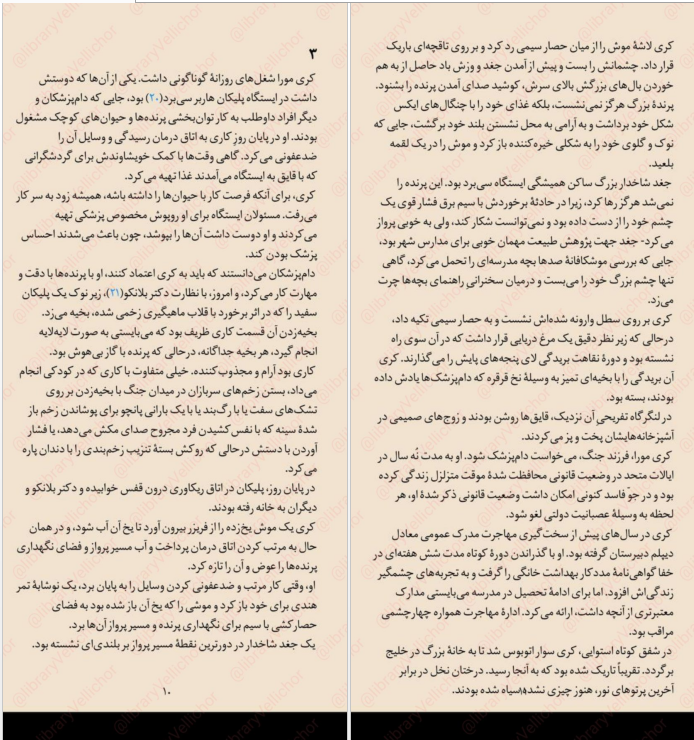 ۳
کری مورا شغل‌های روزانهٔ گوناگونی داشت. یکی از آن‌ها که دوستش
داشت در ایستگاه پلیکان هاربر سی‌برد(۲۰) بود، جایی که دامپزشکان و
دیگر افراد داوطلب به کار توان‌بخشی پرنده‌ها و حیوان‌های کوچک مشغول
بودند. او در پایان روزِ کاری به اتاق درمان رسیدگی و وسایل آن را
ضدعفونی می‌کرد. گاهی وقت‌ها با کمک خویشاوندش برای گردشگرانی
که با قایق به ایستگاه می‌آمدند غذا تهیه می‌کرد.
کری، برای آنکه فرصت کار با حیوان‌ها را داشته باشه، همیشه زود به سر کار
می‌رفت. مسئولان ایستگاه برای او روپوش مخصوص پزشکی تهیه
می‌کردند و او دوست داشت آن‌ها را بپوشد، چون باعث می‌شدند احساس
پزشک بودن کند.
دامپزشکان می‌دانستند که باید به کری اعتماد کنند، او با پرنده‌ها با دقت و
مهارت کار می‌کرد، و امروز، با نظارت دکتر بلانکو(۲۱)، زیر نوک یک پلیکان
سفید را که در اثر برخورد با قلاب ماهیگیری زخمی شده، بخیه می‌زد.
بخیه‌زدن آن قسمت کاری ظریف بود که می‌بایستی به صورت لایه‌لایه
انجام گیرد، هر بخیه جداگانه، درحالی که پرنده با گاز بی‌هوش بود.
کاری بود آرام و مجذوب‌کننده. خیلی متفاوت با کاری که در کودکی انجام
می‌داد، بستن زخم‌های سربازان در میدان جنگ با بخیه‌زدن بر روی
تشک‌های سفت یا با رگ‌بند یا با یک بارانی پانچو برای پوشاندن زخم باز
شدهٔ سینه که با نفس کشیدن فرد مجروح صدای مکش می‌دهد، یا فشار
آوردن با دستش درحالی که روکش بستهٔ تنزیب زخم‌بندی را با دندان پاره
می‌کرد.
در پایان روز، پلیکان در اتاق ریکاوری درون قفس خوابیده و دکتر بلانکو و
دیگران به خانه رفته بودند.
کری یک موش یخ‌زده را از فریزر بیرون آورد تا یخ آن آب شود، و در همان
حال به مرتب کردن اتاق درمان پرداخت و آب مسیر پرواز و فضای نگهداری
پرنده‌ها را عوض و آن را تازه کرد.
او، وقتی کار مرتب و ضدعفونی کردن وسایل را به پایان برد، یک نوشابهٔ تمر
هندی برای خود باز کرد و موشی را که یخ آن باز شده بود به فضای
حصارکشی با سیم برای نگهداری پرنده و مسیر پرواز آن‌ها برد.
یک جغد شاخدار در دورترین نقطهٔ مسیر پرواز بر بلندی‌ای نشسته بود.
۱۰
کری لاشهٔ موش را از میان حصار سیمی رد کرد و بر روی تاقچه‌ای باریک
قرار داد. چشمانش را بست و پیش از آمدن جغد و وزش باد حاصل از به هم
خوردن بال‌های بزرگش بالای سرش، کوشید صدای آمدن پرنده را بشنود.
پرندهٔ بزرگ هرگز نمی‌نشست، بلکه غذای خود را با چنگال‌های ایکس
شکل خود برداشت و به آرامی به محل نشستن بلند خود برگشت، جایی که
نوک و گلوی خود را به شکلی خیره‌کننده باز کرد و موش را در یک لقمه
بلعید.
جغد شاخدار بزرگ ساکن همیشگی ایستگاه سی‌برد بود. این پرنده را
نمی‌شد هرگز رها کرد، زیرا در حادثهٔ برخوردش با سیم برق فشار قوی یک
چشم خود را از دست داده بود و نمی‌توانست شکار کند، ولی به خوبی پرواز
می‌کرد- جغد جهت پژوهش طبیعت مهمان خوبی برای مدارس شهر بود،
جایی که بررسی موشکافانهٔ صدها بچه مدرسه‌ای را تحمل می‌کرد، گاهی
تنها چشم بزرگ خود را می‌بست و درمیان سخنرانی راهنمای بچه‌ها چرت
می‌زد.
کری بر روی سطل وارونه شده‌اش نشست و به حصار سیمی تکیه داد،
درحالی که زیر نظر دقیق یک مرغ دریایی قرار داشت که در آن سوی راه
نشسته بود و دورهٔ نقاهت بریدگی لای پنجه‌های پایش را می‌گذارند. کری
آن بریدگی را با بخیه‌ای تمیز به وسیلهٔ نخ قرقره که دامپزشک‌ها یادش داده
بودند، بسته بود.
در لنگرگاه تفریحیِ آن نزدیک، قایق‌ها روشن بودند و زوج‌های صمیمی در
آشپزخانه‌هایشان پخت و پز می‌کردند.
کری مورا، فرزند جنگ، می‌خواست دامپزشک شود. او به مدت نُه سال در
ایالات متحد در وضعیت قانونی محافظت شدهٔ موقت متزلزل زندگی کرده
بود و در جو فاسد کنونی امکان داشت وضعیت قانونی ذکر شدهٔ او، هر
لحظه به وسیلهٔ عصبانیت دولتی لغو شود.
کری در سال‌های پیش از سخت‌گیری مهاجرت مدرک عمومی معادل
دیپلم دبیرستان گرفته بود. او با گذراندن دورهٔ کوتاه مدت شش هفته‌ای در
خفا گواهی‌نامهٔ مددکار بهداشت خانگی را گرفت و به تجربه‌های چشمگیر
زندگی‌اش افزود. اما برای ادامهٔ تحصیل در مدرسه می‌بایستی مدارک
معتبرتری از آنچه داشت، ارائه می‌کرد. ادارهٔ مهاجرت همواره چهارچشمی
مراقب بود.
در شفق کوتاه استوایی، کری سوار اتوبوس شد تا به خانهٔ بزرگ در خلیج
برگردد. تقریباً تاریک شده بود که به آنجا رسید. درختان نخل در برابر
آخرین پرتوهای نور، هنوز چیزی نشده، سیاه شده بودند.
@libraryVellichor